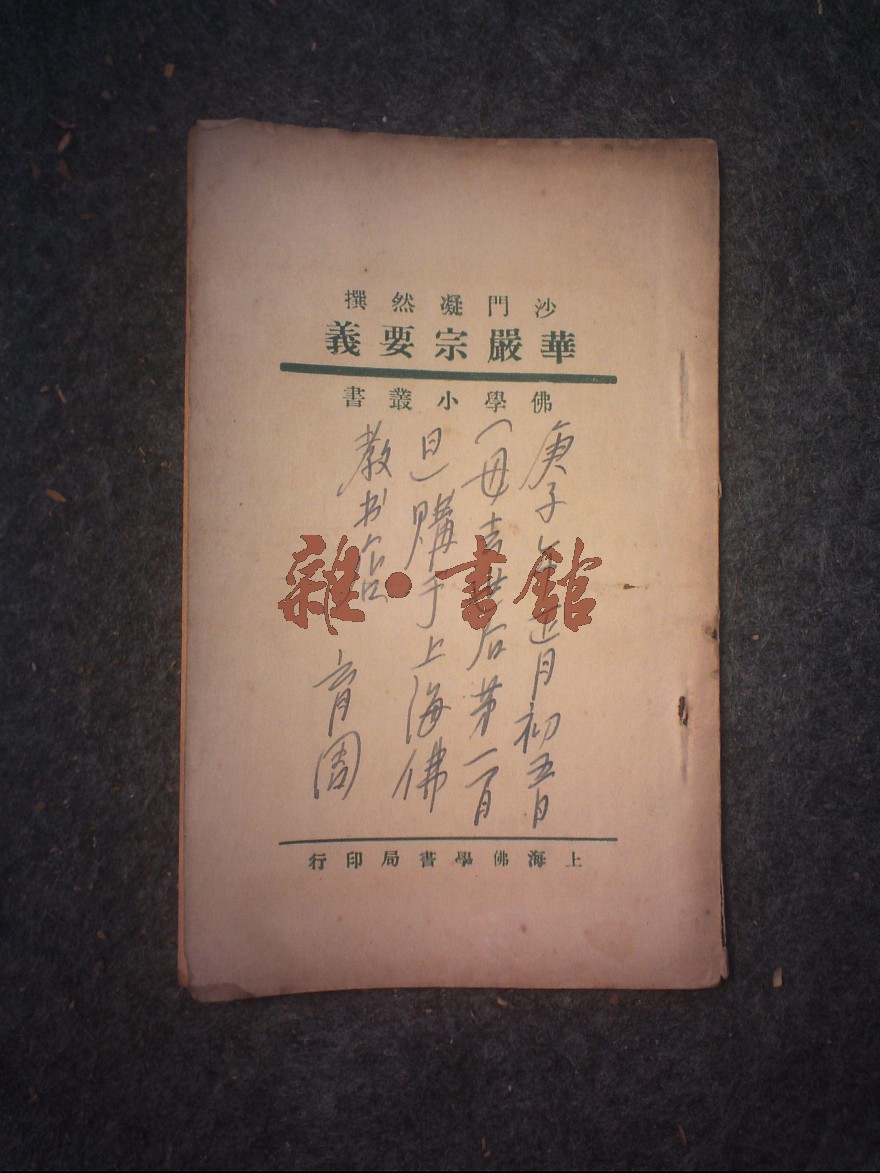 沙門凝然撰
華嚴宗要義
佛學小叢書
庚子年正月初五日
（母去世后第一百
日）購于上海佛
教书店
育周
雜·書館
上海佛學書局印行